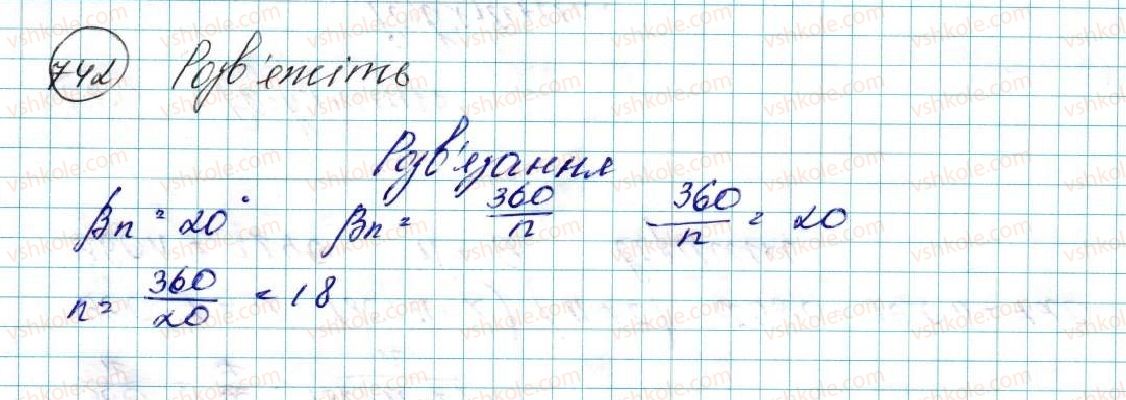 742 Розв'яжіть
Розв'язання
βn = 20° βn = 360/n 360/n = 20
n = 360/20 = 18